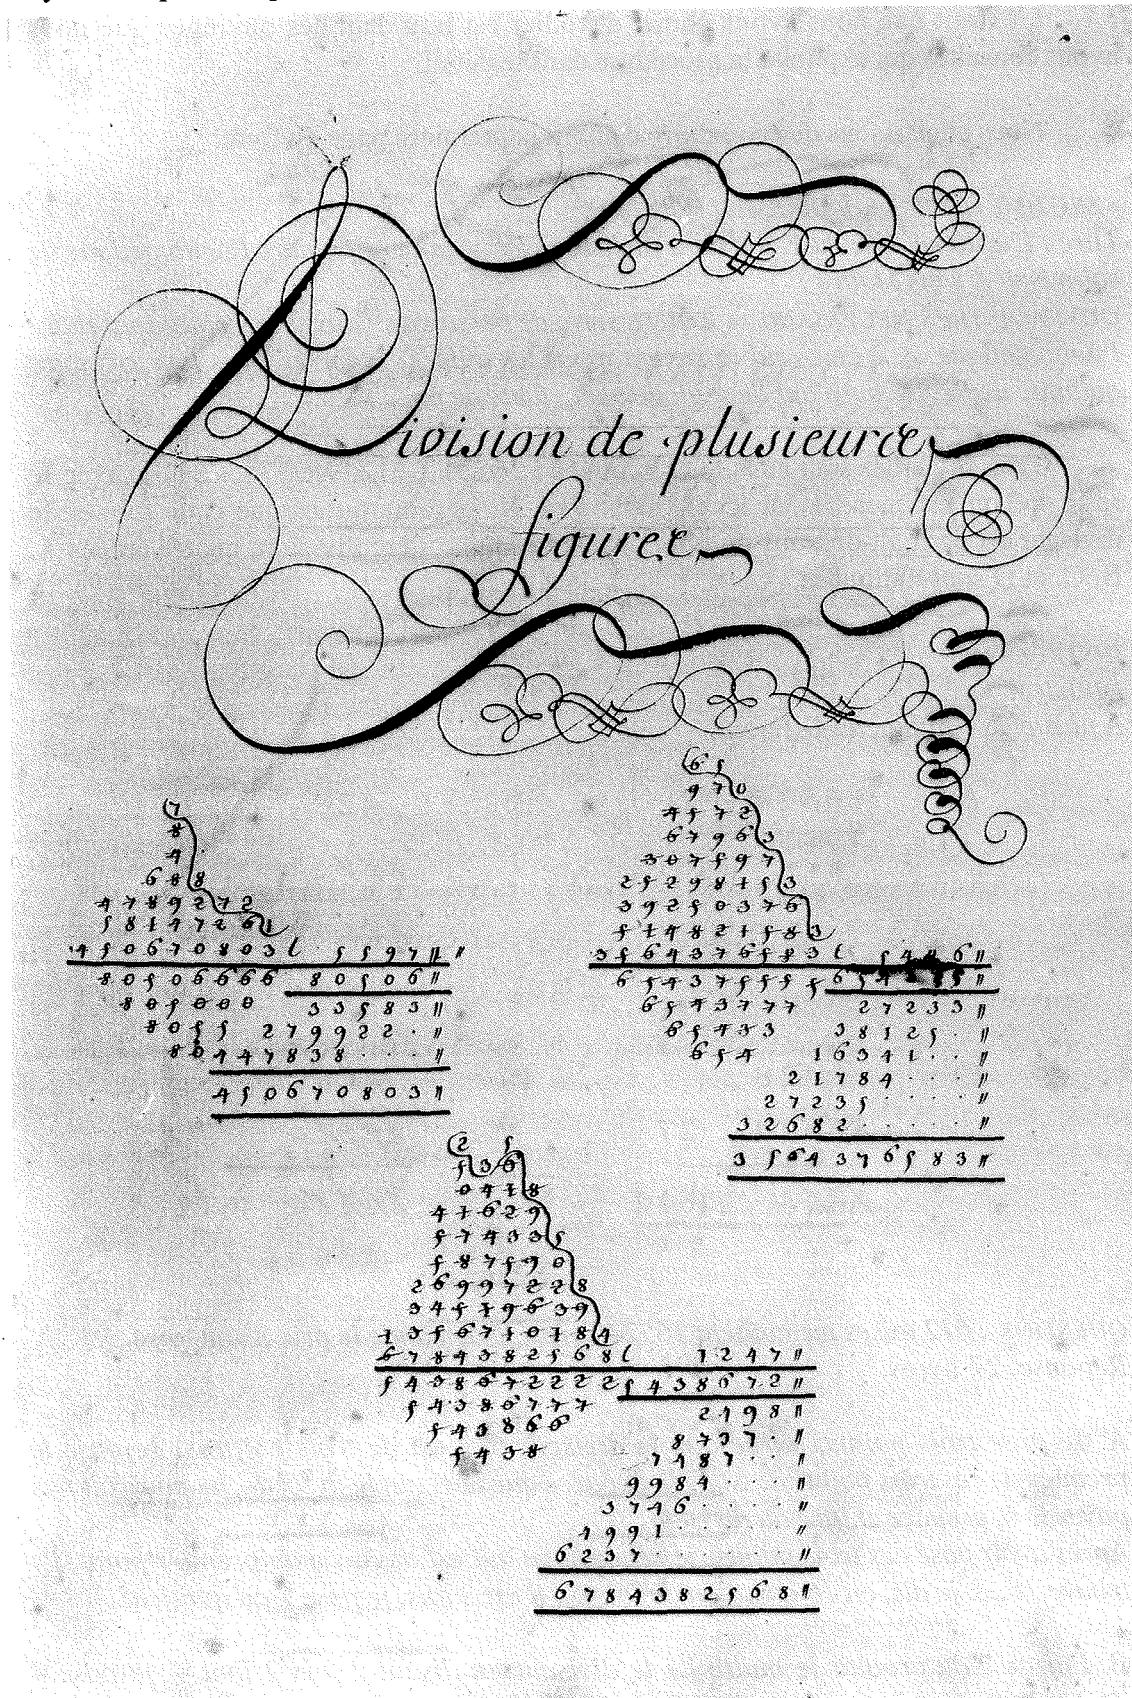 Division de plusieurce
figurece
7
8
4
6 8 8
4 7 8 9 2 7 2
5 8 1 4 7 2 6 1
4 5 0 6 7 0 8 0 3 ( 5 5 9 7 //
8 0 5 0 6 6 6 6 8 0 5 0 6 //
8 0 5 0 0 0 3 3 5 8 3 //
8 0 5 5 2 7 9 9 2 2 · //
8 0 4 4 7 8 3 8 · · · //
4 5 0 6 7 0 8 0 3 //
6 5
9 7 0
4 5 7 2
6 7 9 6 3
3 0 7 5 9 7
2 5 2 9 8 1 5 3
3 9 2 5 0 3 7 6
5 1 4 8 2 1 5 8 3
3 5 6 4 3 7 6 5 8 3 ( 5 4 6 //
6 5 4 3 7 5 5 5 5 6 5 4 //
6 5 4 3 7 7 7 2 7 2 3 3 //
6 5 4 3 3 3 8 1 2 5 · //
6 5 4 1 6 3 4 1 · · //
2 1 7 8 4 · · · //
2 7 2 3 5 · · · · //
3 2 6 8 2 · · · · · //
3 5 6 4 3 7 6 5 8 3 //
2 5
5 3 6
0 4 1 8
4 1 6 2 9
5 7 4 3 3 5
5 8 7 5 9 0
2 6 9 9 7 2 2 8
3 4 5 1 9 6 3 9
1 3 5 6 7 1 0 1 8 4
6 7 8 4 3 8 2 5 6 8 ( 1 2 4 7 //
5 4 3 8 6 7 2 2 2 2 5 4 3 8 6 7 2 //
5 4 3 8 6 7 7 7 2 4 9 8 //
5 4 3 8 6 6 8 7 3 7 · //
5 4 3 8 7 4 8 7 · · //
9 9 8 4 · · · //
3 7 4 6 · · · · //
4 9 9 1 · · · · · //
6 2 3 7 · · · · · · //
6 7 8 4 3 8 2 5 6 8 //